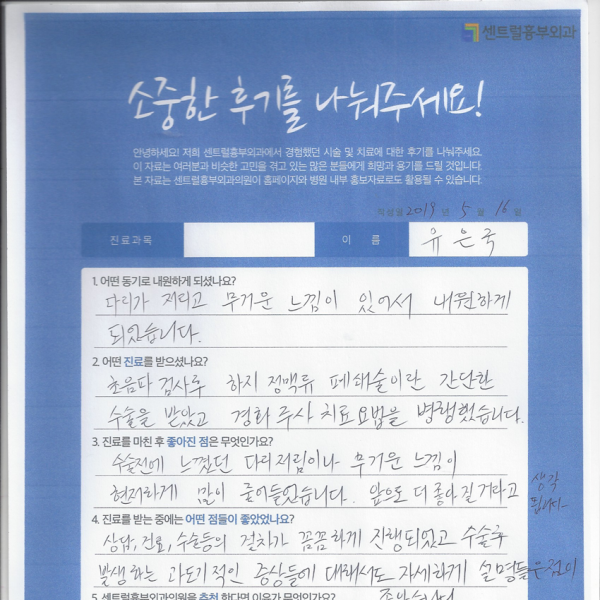 센트럴흉부외과
소중한 후기를 나눠주세요!
안녕하세요! 저희 센트럴흉부외과에서 경험했던 시술 및 치료에 대한 후기를 나눠주세요.
이 자료는 여러분과 비슷한 고민을 겪고 있는 많은 분들에게 희망과 용기를 드릴 것입니다.
본 자료는 센트럴흉부외과의원이 홈페이지와 병원 내부 홍보자료로도 활용될 수 있습니다.
작성일 2019 년 5 월 16 일
진료과목 이 름 유은국
1. 어떤 동기로 내원하게 되셨나요?
다리가 저리고 무거운 느낌이 있어서 내원하게
되었습니다.
2. 어떤 진료를 받으셨나요?
초음파 검사후 하지 정맥류 폐쇄술이란 간단한
수술을 받았고 경화 주사 치료요법을 병행했습니다.
3. 진료를 마친 후 좋아진 점은 무엇인가요?
수술전에 느꼈던 다리저림이나 무거운 느낌이
현저하게 많이 줄어들었습니다. 앞으로 더 좋아질거라고 생각
됩니다~
4. 진료를 받는 중에는 어떤 점들이 좋았었나요?
상담, 진료, 수술등의 절차가 꼼꼼하게 진행되었고 수술후
발생하는 과도기적인 증상들에 대해서도 자세하게 설명들은점이
5. 센트럴흉부외과의원을 추천 한다면 이유가 무엇인가요? 좋았습니다